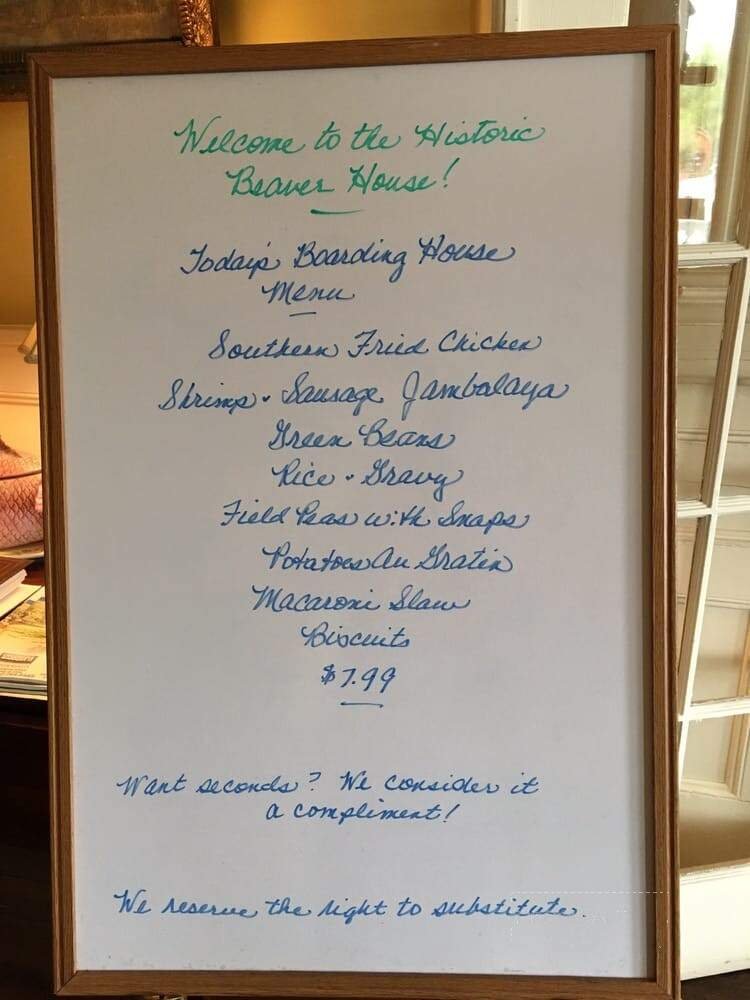 Welcome to the Historic
Beaver House!
Today's Boarding House
Menu
Southern Fried Chicken
Shrimp & Sausage Jambalaya
Green Beans
Rice & Gravy
Field Peas with Snaps
Potatoes Au Gratin
Macaroni Slaw
Biscuits
$7.99
Want seconds? We consider it
a compliment!
We reserve the right to substitute.